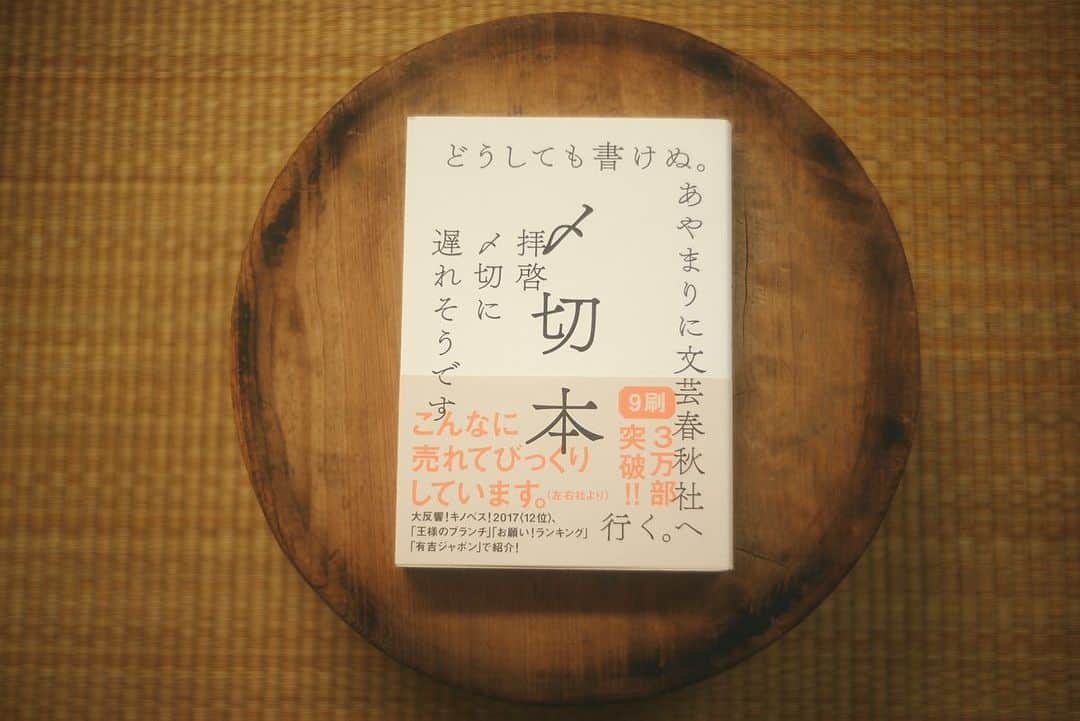 どうしても書けぬ。
あやまりに文芸春秋社へ
行く。
〆切本
拝啓
〆切に
遅れそうです
9刷
3万部
突破!!
こんなに
売れてびっくり
しています。(左右社より)
大反響!キノベス!2017(12位)、
「王様のブランチ」「お願い!ランキング」
「有吉ジャポン」で紹介!